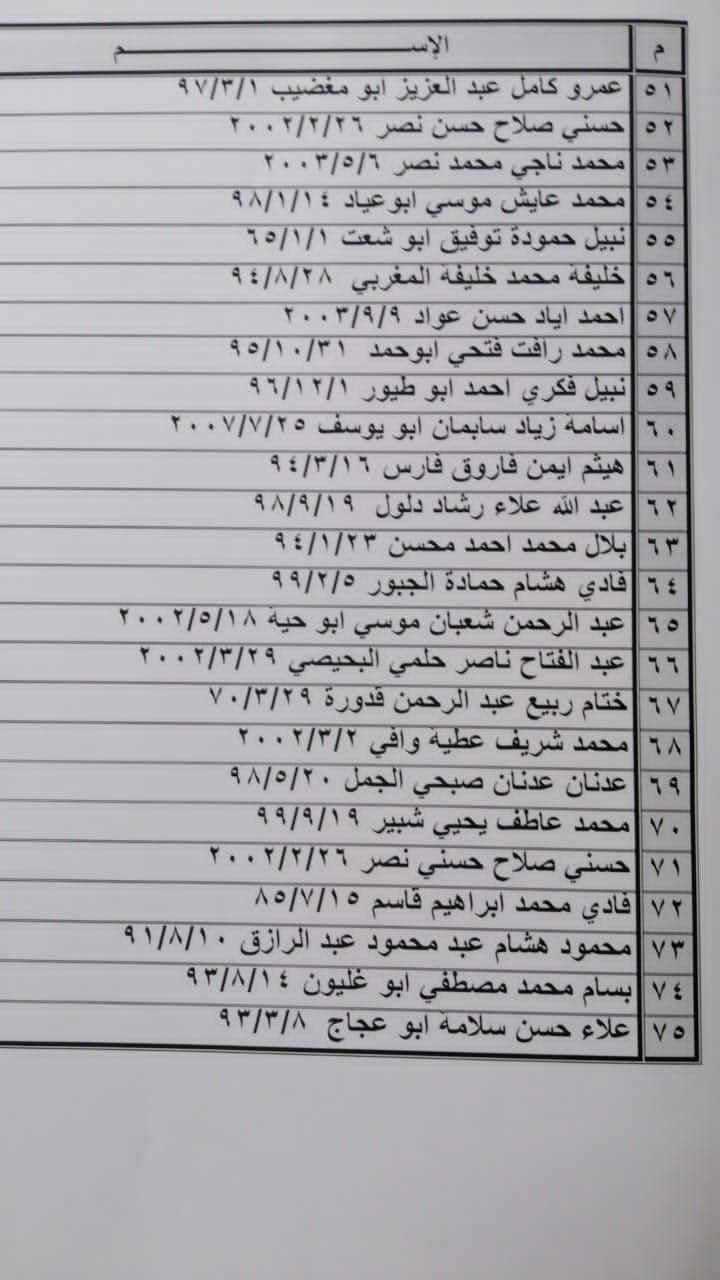 م الإســـــــــــــــــــــــــــــــم
٥١ عمرو كامل عبد العزيز ابو مغضيب ٩٧/٣/١
٥٢ حسني صلاح حسن نصر ٢٠٠٢/٢/٢٦
٥٣ محمد ناجي محمد نصر ٢٠٠٣/٥/٦
٥٤ محمد عايش موسي ابوعياد ٩٨/١/١٤
٥٥ نبيل حمودة توفيق ابو شعت ٦٥/١/١
٥٦ خليفة محمد خليفة المغربي ٩٤/٨/٢٨
٥٧ احمد اياد حسن عواد ٢٠٠٣/٩/٩
٥٨ محمد رافت فتحي ابوحمد ٩٥/١٠/٣١
٥٩ نبيل فكري احمد ابو طيور ٩٦/١٢/١
٦٠ اسامة زياد سابمان ابو يوسف ٢٠٠٧/٧/٢٥
٦١ هيثم ايمن فاروق فارس ٩٤/٣/١٦
٦٢ عبد الله علاء رشاد دلول ٩٨/٩/١٩
٦٣ بلال محمد احمد محسن ٩٤/١/٢٣
٦٤ فادي هشام حمادة الجبور ٩٩/٢/٥
٦٥ عبد الرحمن شعبان موسي ابو حية ٢٠٠٢/٥/١٨
٦٦ عبد الفتاح ناصر حلمي البحيصي ٢٠٠٢/٣/٢٩
٦٧ ختام ربيع عبد الرحمن قدورة ٧٠/٣/٢٩
٦٨ محمد شريف عطية وافي ٢٠٠٢/٣/٢
٦٩ عدنان عدنان صبحي الجمل ٩٨/٥/٢٠
٧٠ محمد عاطف يحيي شبير ٩٩/٩/١٩
٧١ حسني صلاح حسني نصر ٢٠٠٢/٢/٢٦
٧٢ فادي محمد ابراهيم قاسم ٨٥/٧/١٥
٧٣ محمود هشام عبد محمود عبد الرازق ٩١/٨/١٠
٧٤ بسام محمد مصطفي ابو غليون ٩٣/٨/١٤
٧٥ علاء حسن سلامة ابو عجاج ٩٣/٣/٨